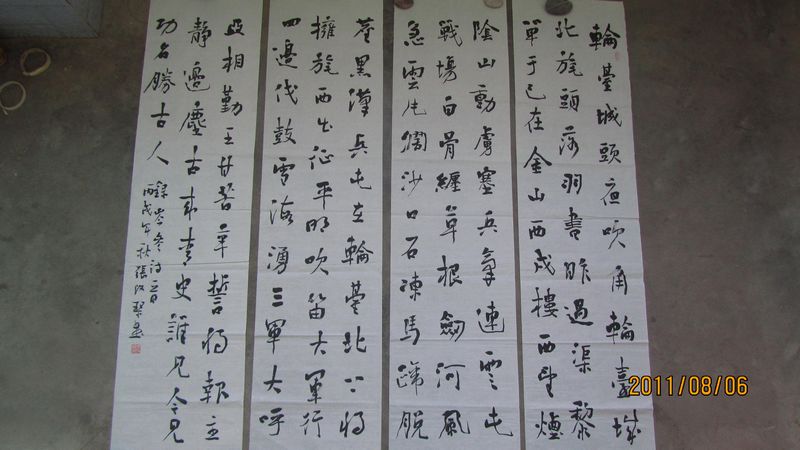 輪臺城頭夜吹角輪臺城
北旄頭落羽書昨過渠黎
單于已在金山西戍樓西望煙
陰山動虜塞兵氣連雲屯
戰場白骨纏草根劍河風
急雲片闊沙口石凍馬蹄脫
塵黑漢兵屯在輪臺北上將
擁旄西出征平明吹笛大軍行
四邊伐鼓雪海湧三軍大呼
亞相勤王甘苦辛誓將報主
靜邊塵古來青史誰見今見
功名勝古人
錄岑參詩
丙戌年秋張
2011/08/06